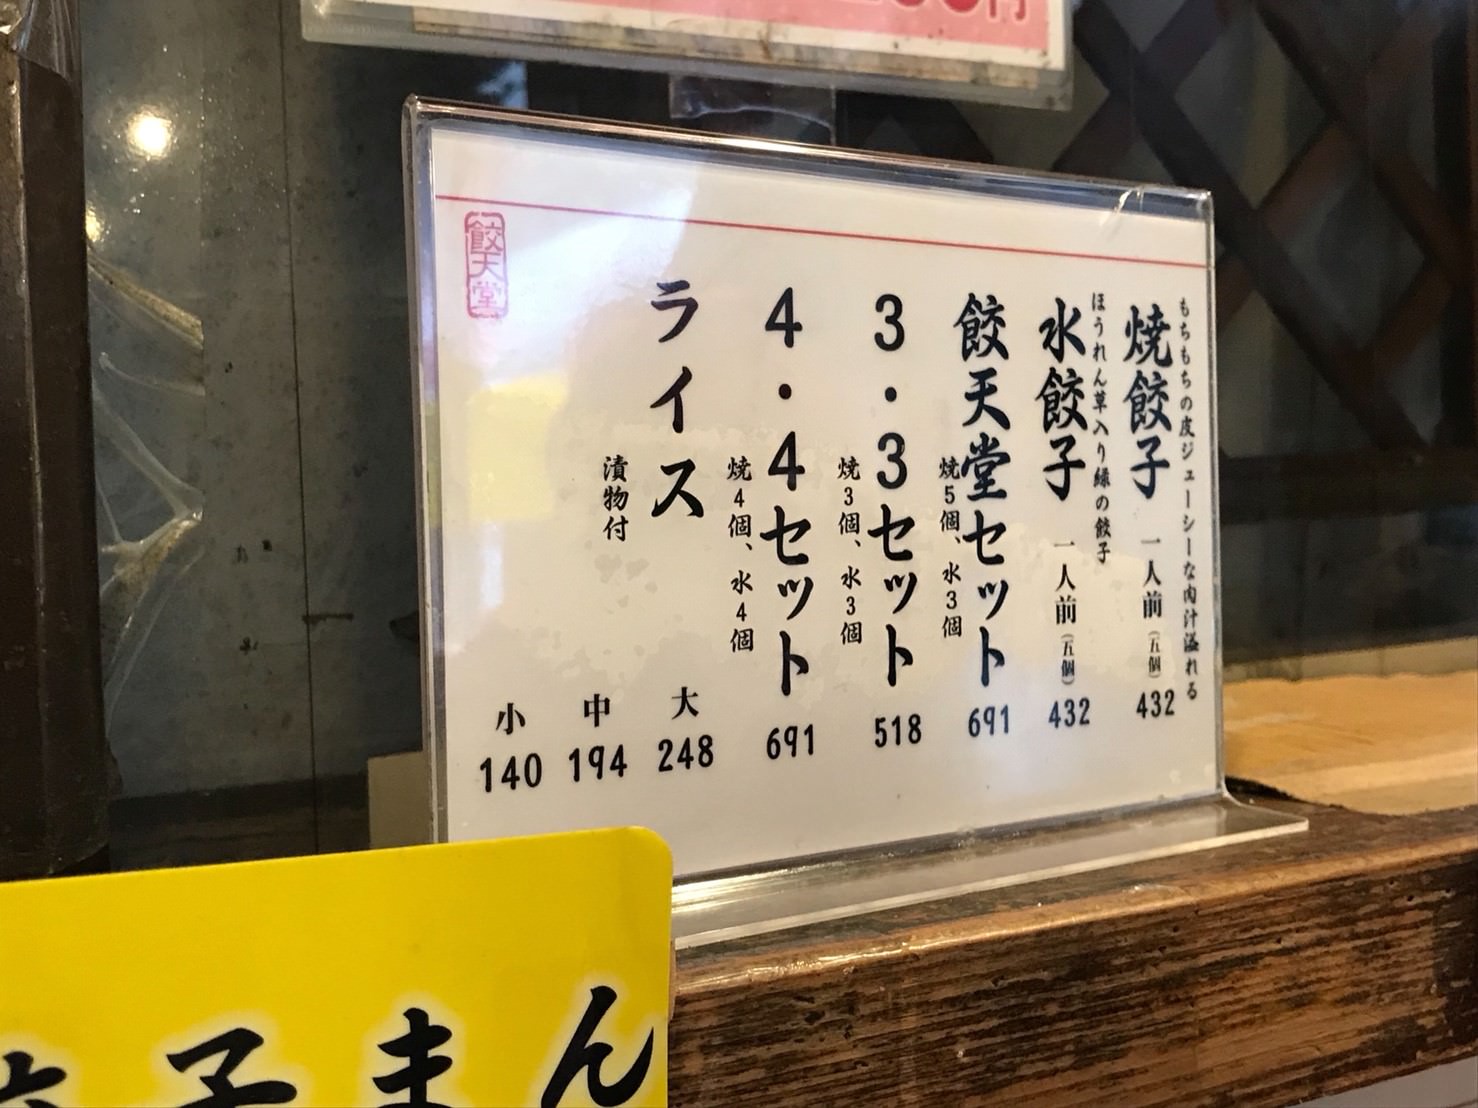 円
餃天堂
もちもちの皮ジューシーな肉汁溢れる
焼餃子 一人前(五個) 432
ほうれん草入り緑の餃子
水餃子 一人前(五個) 432
餃天堂セット 691
焼5個、水3個
3・3セット 518
焼3個、水3個
4・4セット 691
焼4個、水4個
ライス 大 248
漬物付 中 194
小 140
子まん